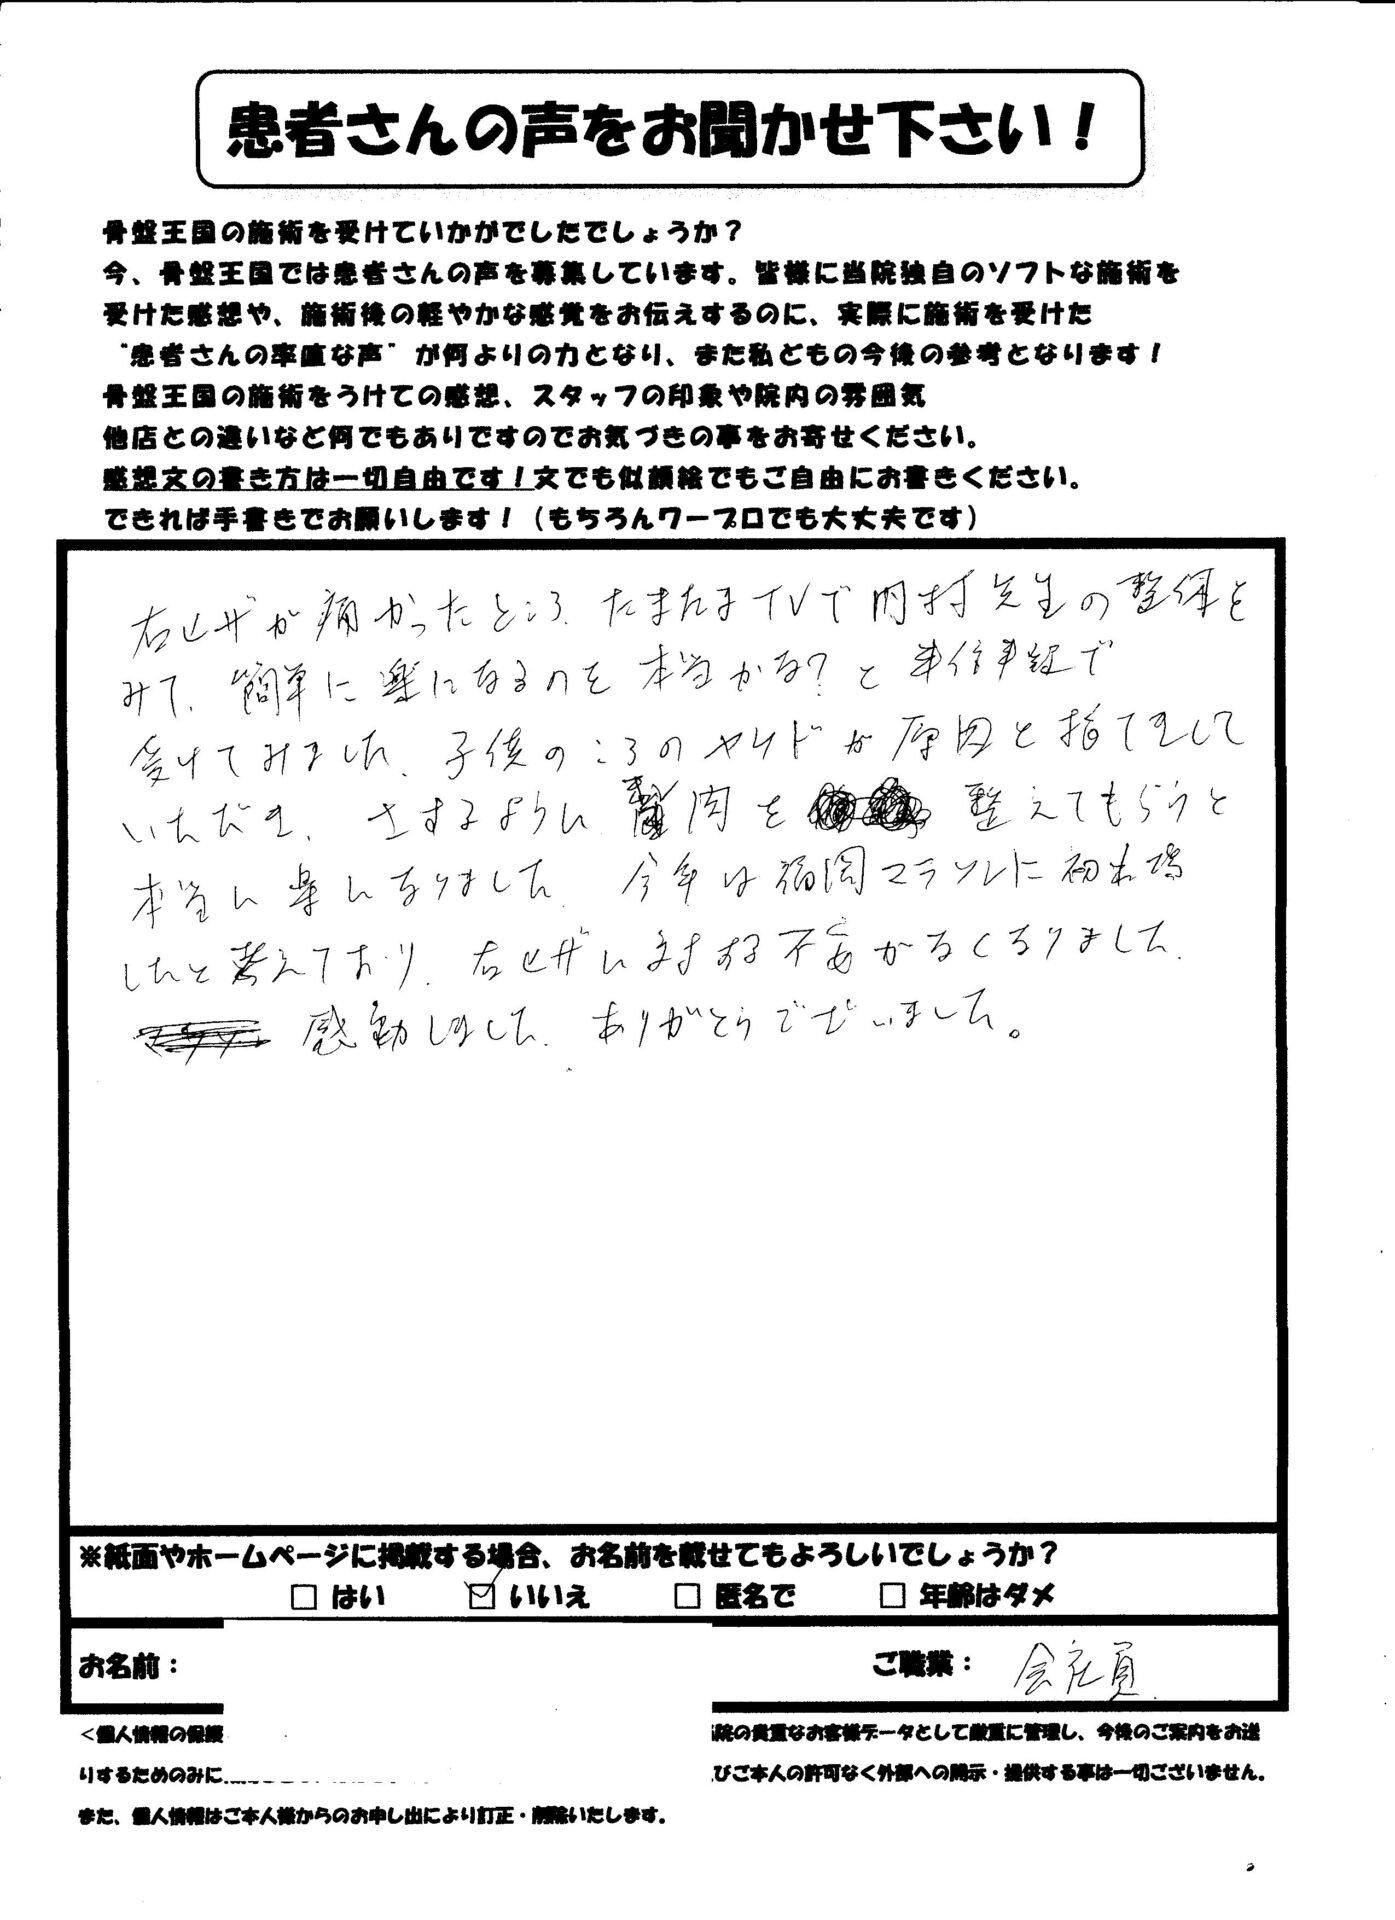 患者さんの声をお聞かせ下さい！
骨盤王国の施術を受けていかがでしたでしょうか？
今、骨盤王国では患者さんの声を募集しています。皆様に当院独自のソフトな施術を
受けた感想や、施術後の軽やかな感覚をお伝えするのに、実際に施術を受けた
“患者さんの率直な声”が何よりの力となり、また私どもの今後の参考となります！
骨盤王国の施術をうけての感想、スタッフの印象や院内の雰囲気
他店との違いなど何でもありですのでお気づきの事をお寄せください。
感想文の書き方は一切自由です！文でも似顔絵でもご自由にお書きください。
できれば手書きでお願いします！（もちろんワープロでも大丈夫です）
右ヒザが痛かったところ、たまたまTVで内村先生の整体を
みて、簡単に楽になるのを本当かな？と半信半疑で
受けてみました。子供のころのヤケドが原因と指てきして
いただき、さするように筋肉を整えてもらうと
本当に楽になりました。今年は福岡マラソンに初出場
したと考えており、右ヒザに対する不安がなくなりました。
感動しました。ありがとうございました。
※紙面やホームページに掲載する場合、お名前を載せてもよろしいでしょうか？
□ はい ☑ いいえ □ 匿名で □ 年齢はダメ
お名前： ご職業： 会社員
＜個人情報の保護 院の貴重なお客様データとして厳重に管理し、今後のご案内をお送
りするためのみに びご本人の許可なく外部への開示・提供する事は一切ございません。
また、個人情報はご本人様からのお申し出により訂正・削除いたします。